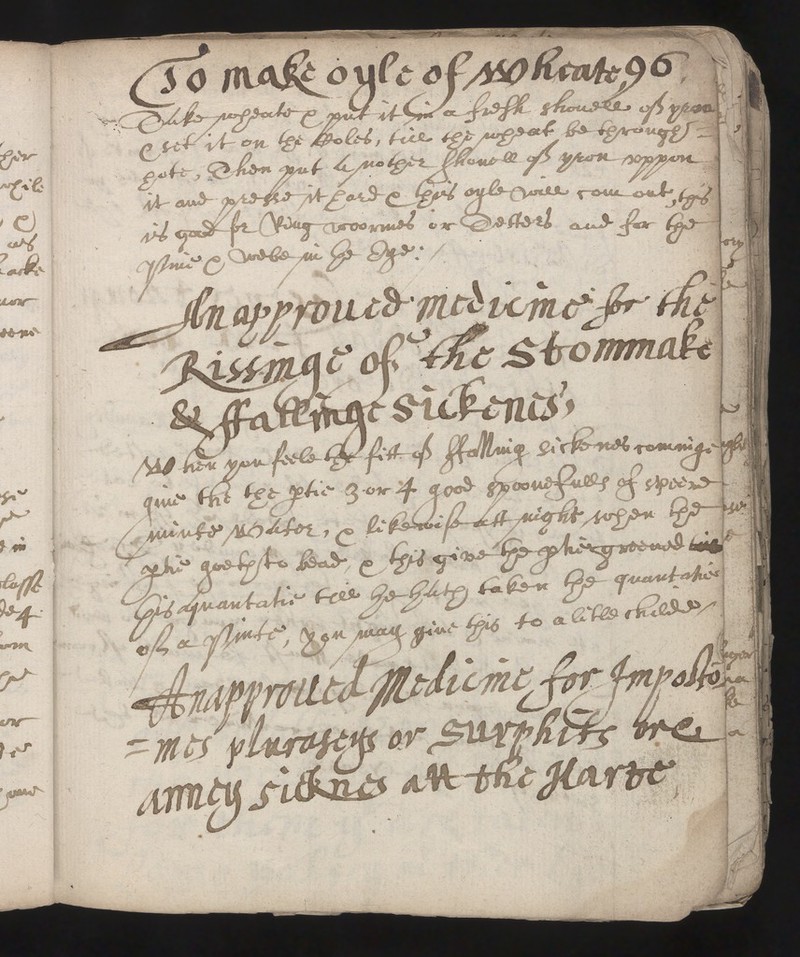 To make oyle of Wheate, 96
Take wheate & put it in a fresh shouell of yron
& set it on the Coles, till the wheat be through =
hote, Then put a nother shouell of yron vppon
it and presse it hard & this oyle will com out, this
is good for Ring woormes or Tetters and for the
Pinne & Webe in the Eye:
An approued medicine for the
Rissinge of the Stommake
& ffallinge Sickenes,
When you feele the fitt of ffalling sickenes comminge
giue the the ptie 3 or 4 good spoonefulls of speere
minte Water, & likewise att night when the
ptie goeth to bead, & this giue the ptie
his quantatie till he hath taken the quantatie
of a Pinte, you may giue this to a litle childe
An approued Medicine for Imposto
= mes pluraseys or Surphits or
anney sicknes att the Harte